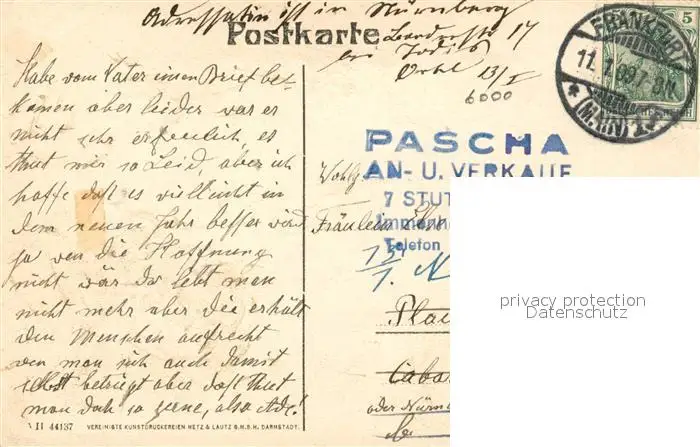 Adressatin ist in Nürnberg
Postkarte
17
bei
13/I
6000
FRANKFURT
11.1.09.
(MAIN) 1
5
Habe vom Vater einen Brief be-
komen aber leider war er
nicht sehr erfreulich, es
thut mir so Leid, aber ich
hoffe daß es vielleicht in
dem neuen Jahr besser wird
ja wen die Hoffnung
nicht wär da lebt man
nicht mehr aber die erhält
den Menschen aufrecht
wen man sich auch damit
selbst betrügt aber daß thut
man doch so gerne, also Ade!
PASCHA
AN- U. VERKAUF
7 STUT
Immenh
Telefon
Wohlg
Fräulein
13/1. N
Plau
Cabar
oder Nürn
VII 44137 VEREINIGTE KUNSTDRUCKEREIEN METZ & LAUTZ G.M.B.H. DARMSTADT.
privacy protection
Datenschutz